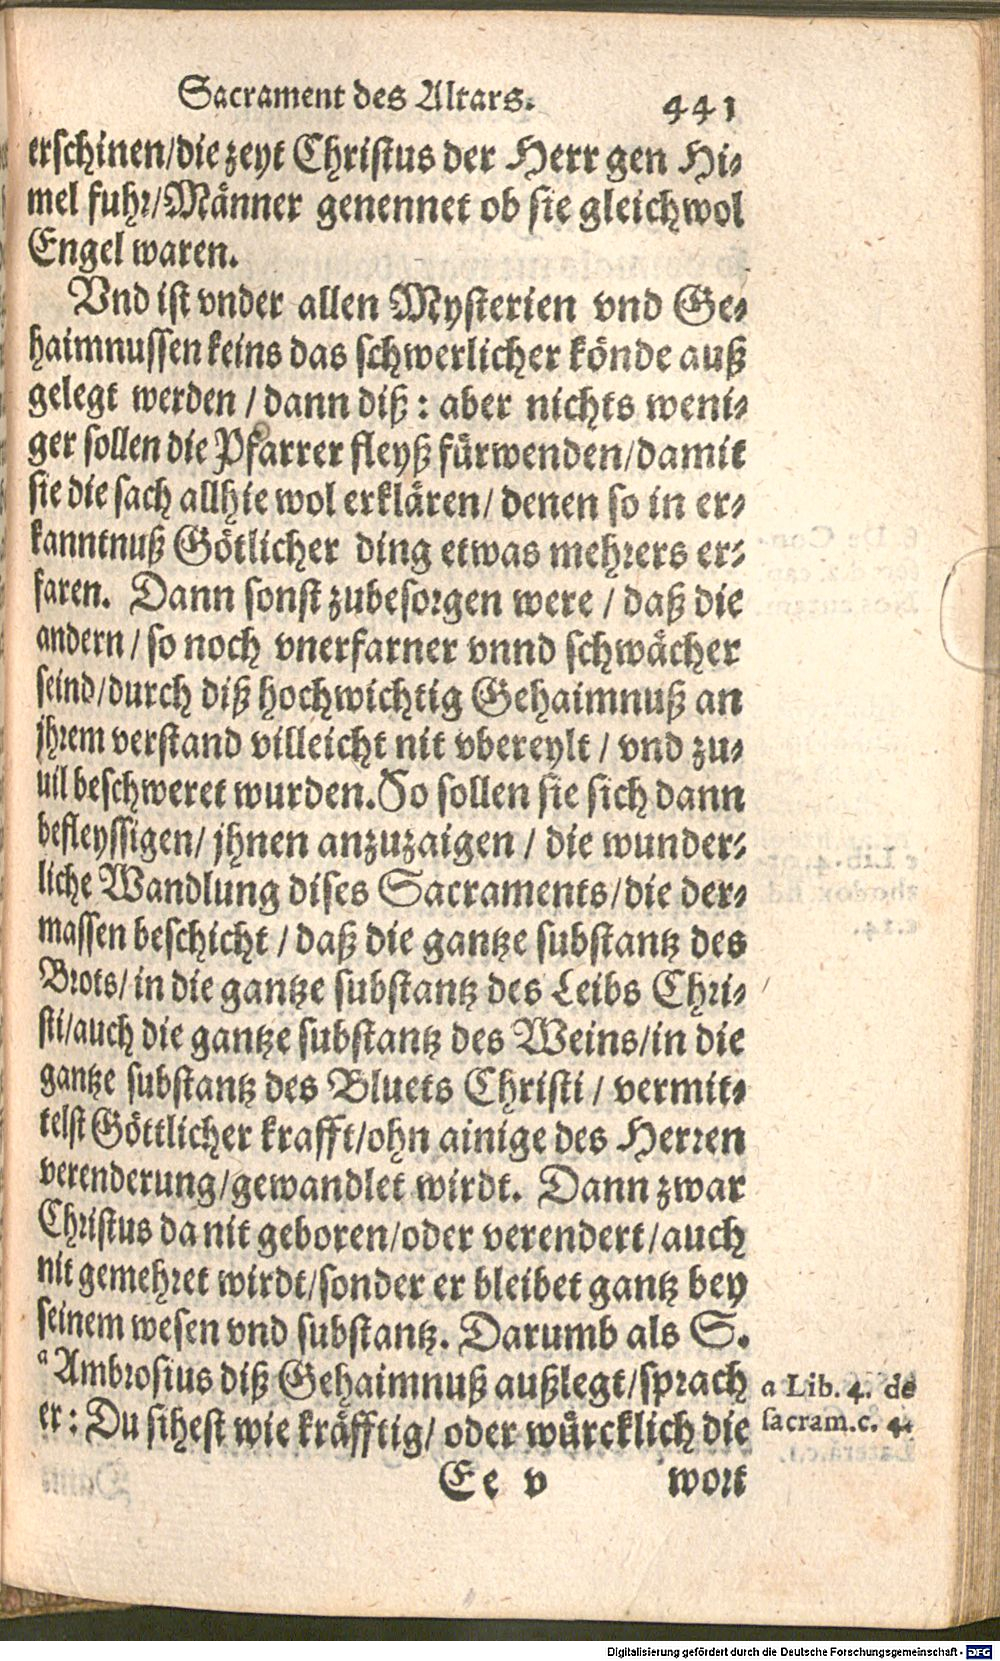 Sacrament des Altars. 441
erschinen/die zeyt Christus der Herr gen Hi-
mel fuhr/Männer genennet ob sie gleichwol
Engel waren.
Vnd ist vnder allen Mysterien vnd Ge-
haimnussen keins das schwerlicher könde auß
gelegt werden / dann diß : aber nichts weni-
ger sollen die Pfarrer fleyß fürwenden/damit
sie die sach allhie wol erklären/ denen so in er-
kanntnuß Götlicher ding etwas mehrers er-
faren. Dann sonst zubesorgen were / daß die
andern / so noch vnerfarner vnnd schwächer
seind/durch diß hochwichtig Gehaimnuß an
jhrem verstand villeicht nit vbereylt / vnd zu-
uil beschweret wurden. So sollen sie sich dann
befleyssigen/ jhnen anzuzaigen / die wunder-
liche Wandlung dises Sacraments/die der-
massen beschicht / daß die gantze substantz des
Brots/ in die gantze substantz des Leibs Chri-
sti/auch die gantze substantz des Weins/in die
gantze substantz des Bluets Christi / vermit-
telst Göttlicher krafft/ohn ainige des Herren
verenderung/gewandlet wirdt. Dann zwar
Christus da nit geboren/oder verendert/auch
nit gemehret wirdt/sonder er bleibet gantz bey
seinem wesen vnd substantz. Darumb als S.
a Ambrosius diß Gehaimnuß außlegt/sprach
er : Du sihest wie kräfftig/ oder würcklich die
a Lib. 4. de
sacram.c. 4.
Ee v wort
Digitalisierung gefördert durch die Deutsche Forschungsgemeinschaft - DFG